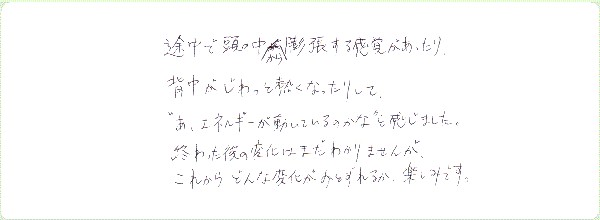 途中で頭の中から膨張する感覚があったり、
背中がじわっと熱くなったりして、
"あ、エネルギーが動いているのかな"と感じました。
終わった後の変化はまだわかりませんが、
これからどんな変化がおとずれるか、楽しみです。